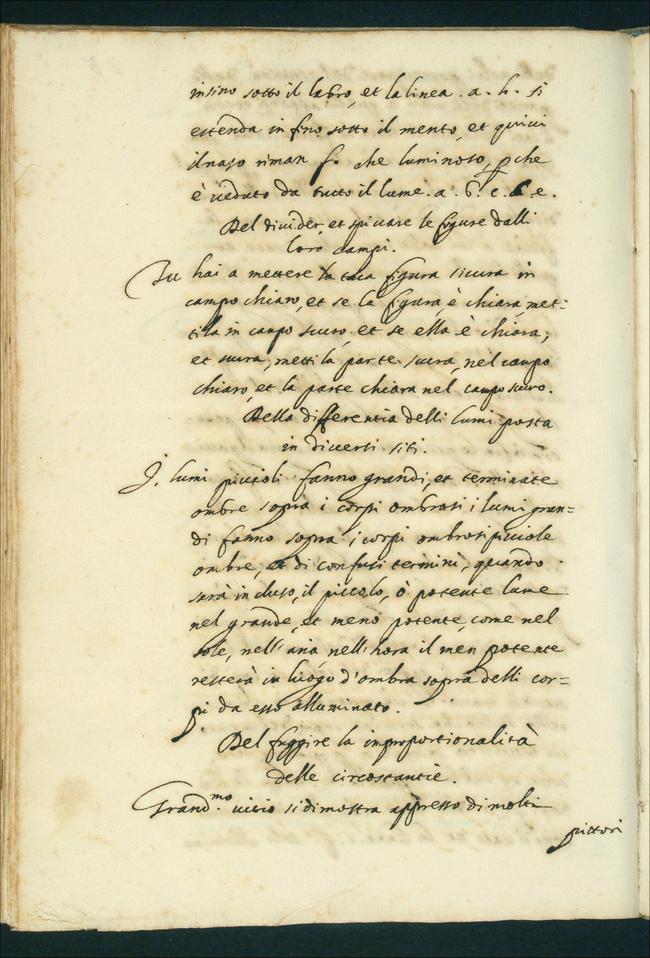 insino sotto il labro, et la linea .a. h. si
estenda in fino sotto il mento, et quivi
il naso riman fo che luminoso, pche
è vedato da tutto il lume .a. b. c. d. e.
Del divider, et spiccare le figure dalli
loro campi.
Tu hai a mettere la tua figura scura in
campo chiaro, et se la figura è chiara met-
tila in campo scuro, et se ella è chiara,
et scura, metti la parte scura, nel campo
chiaro, et la parte chiara nel campo scuro.
Della differentia delli lumi posta
in diversi siti.
I lumi piccioli fanno grandi, et terminate
ombre sopra i corpi ombrosi i lumi gran=
di fanno sopra i corpi ombrosi picciole
ombre, et di confusi termini, quando
sarà incluso, il piccolo, ò potente lume
nel grande, et meno potente, come nel
sole, nell' aria nell' hora il men potente
resterà in luogo d'ombra sopra delli cor=
pi da esso alluminato.
Del fuggire la improportionalità
delle circostantie.
Grand.mo vicio si dimostra appresso di molti
pittori